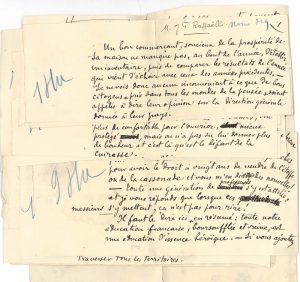 M. J F. Raffaëlli
Un bon commerçant, soucieux de la prospérité de
sa maison ne manque pas, au bout de l'année, d'établir
un inventaire, puis de comparer les résultats de l'année
qui vient d'échoir avec ceux des années précédentes.
Je ne vois donc aucun inconvénient à ce que de bons
citoyens, pris dans tous les mondes de la pensée, soient
appelés à dire leur opinion sur la direction générale
donnée à leur pays.
plus de comfortable pour l'ouvrier, mieux
protégé mais on n'a pas su lui donner plus
de bonheur et c'est qu'est le défaut de la
cuirasse.
pour avoir le droit à vingt ans de vendre de l'étoffe
ou de la cassonade et vous m'en direz des nouvelles!
toute une génération de s'y est attelée,
et je vous réponds que lorsque ces
messieurs s'y mettent, ça n'est pas pour rire!
Il faut le dire ici, en résumé: toute notre
éducation française, boursoufflée et vaine, est
une éducation d'essence héroïque. — Si vous ajoutez
Traverser tous les territoires.